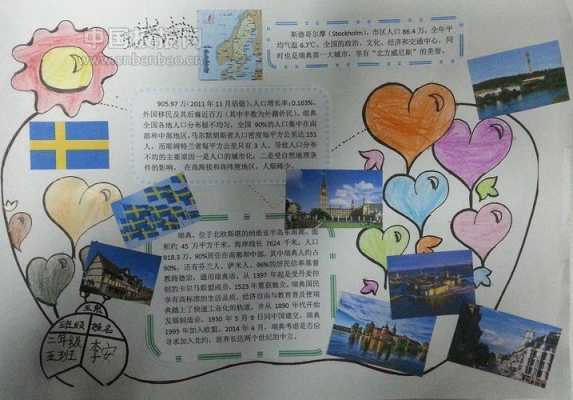 中国板报网
www.cnbanbao.cn
斯德哥尔摩（Stockholm），市区人口86.4万，全年平
均气温6.7℃，全国的政治、文化、经济和交通中心，同
时也是瑞典第一大城市，享有“北方威尼斯”的美誉。
905.97万（2011年11月估值），人口增长率：0.163%。
外国移民及其后裔近百万（其中半数为外籍侨民）。瑞典
全国各地人口分布极不均匀，全国90%的人口集中在南
部和中部地区，马尔默胡斯省人口密度每平方公里达151
人，而耶姆特兰省每平方公里只有3人。导致人口分布
不均的主要原因一是人口的城市化，二是受自然地理条
件的影响，在高海拔和高纬度地区，人烟稀少。
瑞典，位于北欧斯堪的纳维亚半岛东南部，面
积约45万平方千米，海岸线长7624千米，人口
918.3万，90%居住在南部和中部，其中瑞典人约占
90%，还有芬兰人、萨米人，96%的居民信奉基督
教路德宗，通用瑞典语，从1397年起是受丹麦控
制的卡尔马联盟成员，1523年重获独立，瑞典国民
享有高标准的生活品质，经济自由与教育普及使瑞
典踏上了快速工业化的轨道，并从1890年代开始
发展制造业，1950年5月9日同中国建交，瑞典
1995年加入欧盟，2014年4月，瑞典考虑是否份
寻求加入北约，放弃长达两个世纪的中立。
班级 姓名
二年级 李安
五班